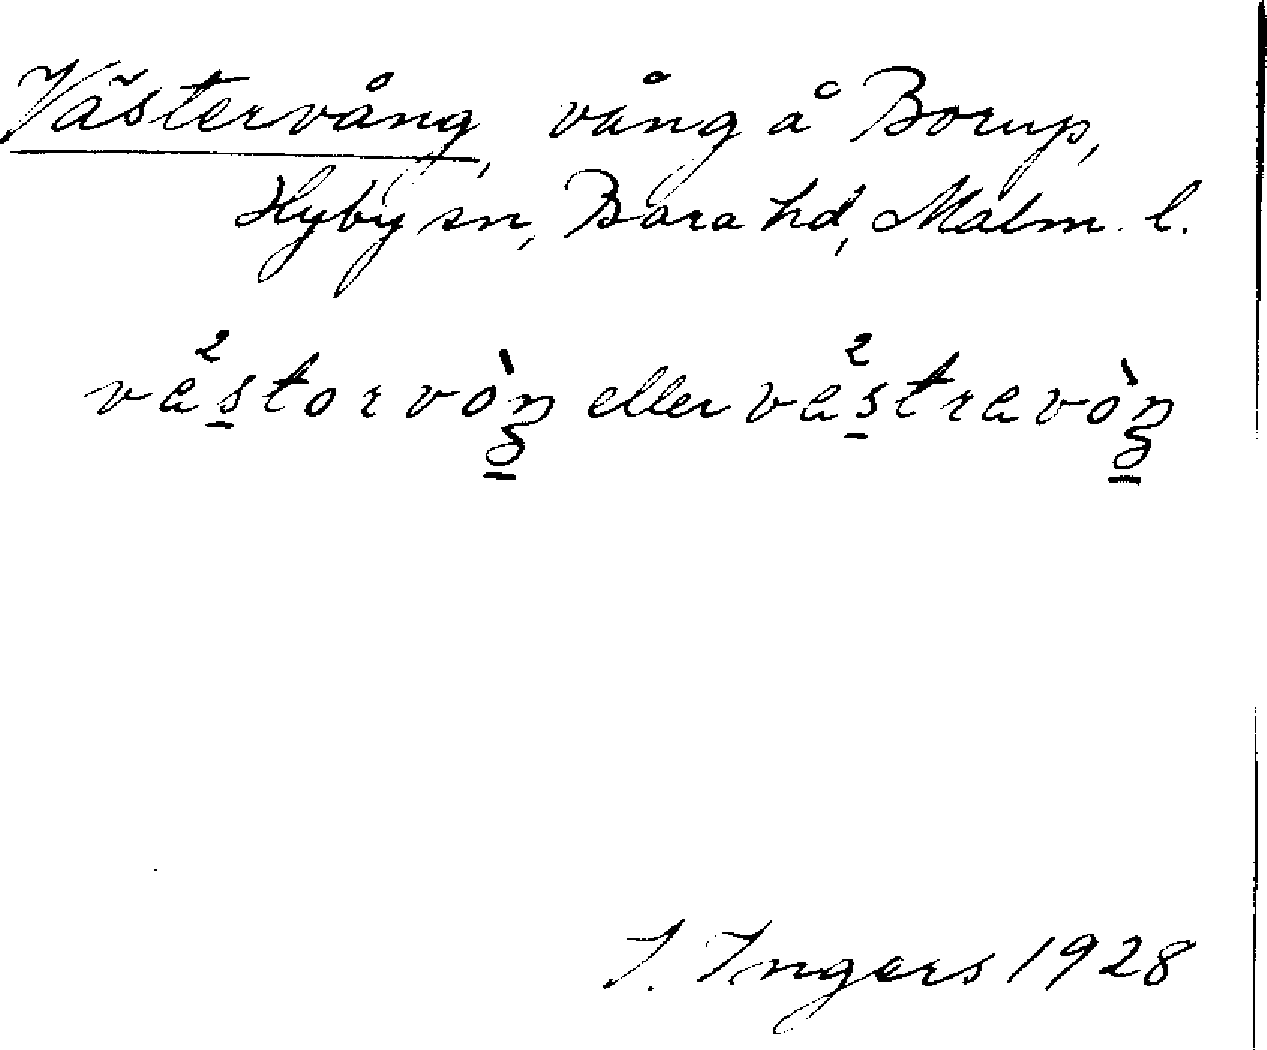 Västervång, vång å Borup,
Hyby sn, Bara hd, Malm. l.
va²storvòŋ eller va²stravòŋ
I. Ingers 1928